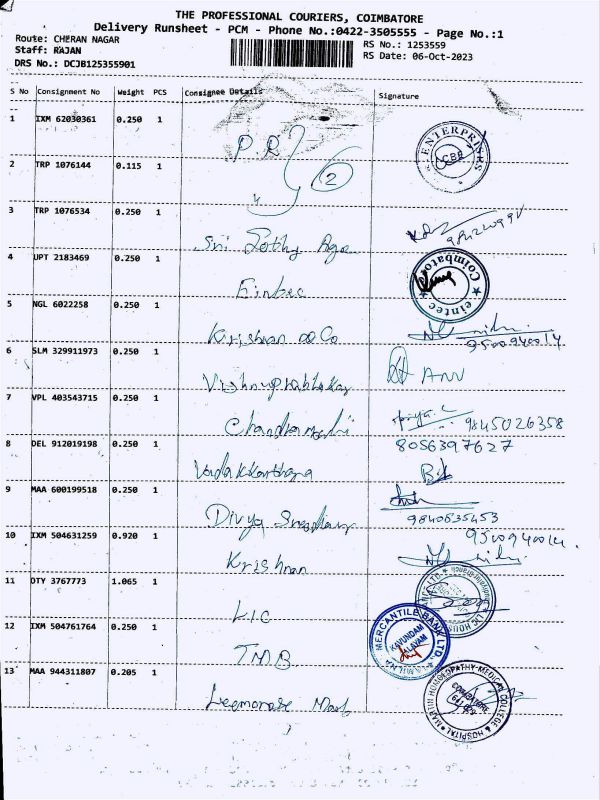 THE PROFESSIONAL COURIERS, COIMBATORE
Delivery Runsheet - PCM - Phone No.:0422-3505555 - Page No.:1
Route: CHERAN NAGAR
RS No.: 1253559
Staff: RAJAN
RS Date: 06-Oct-2023
DRS No.: DCJB125355901
S No Consignment No Weight PCS Consignee Details Signature
1 IXM 62030361 0.250 1 P.R ENTERPRISES CBE
2 TRP 1076144 0.115 1 2
3 TRP 1076534 0.250 1 Sri
4 UPT 2183469 0.250 1 Eintec Coimbatore eintec
5 NGL 6022258 0.250 1 Krishnan & Co
9500940014
6 SLM 329911973 0.250 1 Vishnuprabhakar ANU
7 VPL 403543715 0.250 1 priya.c 9845026358
8056397627
8 DEL 912019198 0.250 1
9 MAA 600199518 0.250 1 Divya
9840835453
10 IXM 504631259 0.920 1 Krishnan 9500940014.
11 OTY 3767773 1.065 1 L.I.C
12 IXM 504761764 0.250 1 TMB MERCANTILE BANK LTD. KAVUNDAM PALAYAM
13 MAA 944311807 0.205 1 MARTIN HOMOEOPATHY MEDICAL COLLEGE & HOSPITAL COIMBATORE